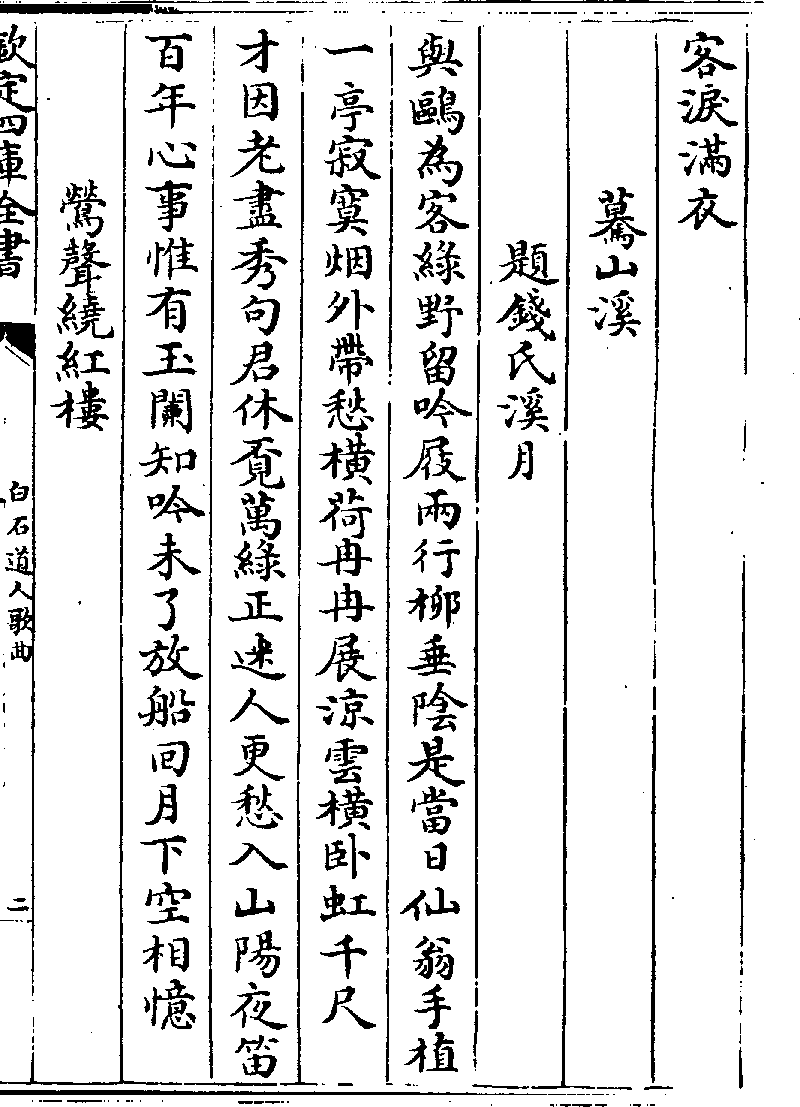 客淚滿衣
驀山溪
題錢氏溪月
與鷗為客綠野留吟屐兩行柳垂陰是當日仙翁手植
一亭寂寞烟外帶愁橫荷冉冉展涼雲橫卧虹千尺
才因老盡秀句君休覔萬綠正迷人更愁入山陽夜笛
百年心事惟有玉闌知吟未了放船回月下空相憶
鶯聲繞紅樓
欽定四庫全書
白石道人歌曲
二